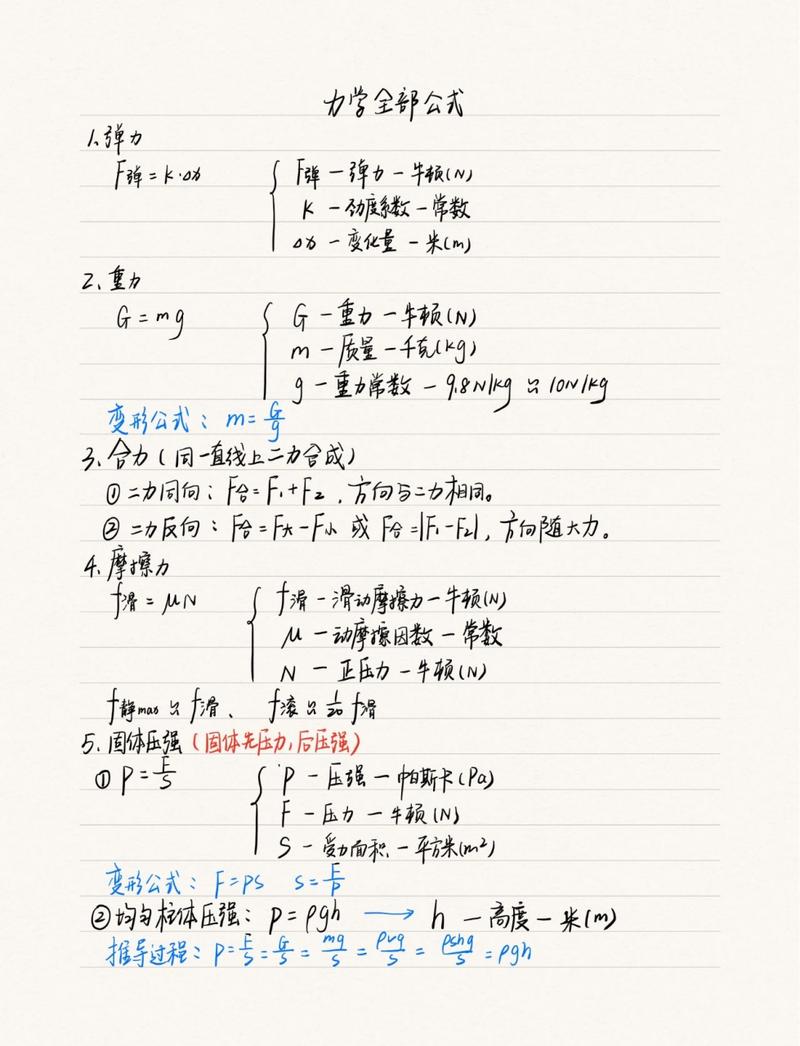 力学全部公式
1.弹力
F弹=K·Δx { F弹-弹力-牛顿(N)
K-劲度系数-常数
Δx-变化量-米(m)
2、重力
G=mg { G-重力-牛顿(N)
m-质量-千克(kg)
g-重力常数-9.8N/kg≈10N/kg
变形公式: m=G/g
3、合力(同一直线上二力合成)
①二力同向: F合=F1+F2,方向与二力相同。
②二力反向: F合=F大-F小 或 F合=|F1-F2|,方向随大力。
4、摩擦力
f滑=μN { f滑-滑动摩擦力-牛顿(N)
μ-动摩擦因数-常数
N-正压力-牛顿(N)
f静max≈f滑、 f滚≈1/20 f滑
5、固体压强(固体先压力,后压强)
①P=F/S { P-压强-帕斯卡(Pa)
F-压力-牛顿(N)
S-受力面积-平方米(m²)
变形公式: F=PS S=F/P
②均匀柱体压强: P=ρgh → h-高度-米(m)
推导过程: P=F/S=G/S=mg/S=ρVg/S=ρShg/S=ρgh